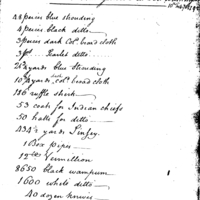 44 pieces blue strouding
4 pieces black ditto
3 pieces dark Col.d broad cloth
3 ps. ditto
24 yards blue Strouding
10 yards Col.d broad cloth
186 ruffle shirts
53 coats for Indian chiefs
50 hatts for ditto
434½ yards Linsey
1 Box Pipes
Vermillion
8650 black wampum
1600 white ditto
40 dozen knives